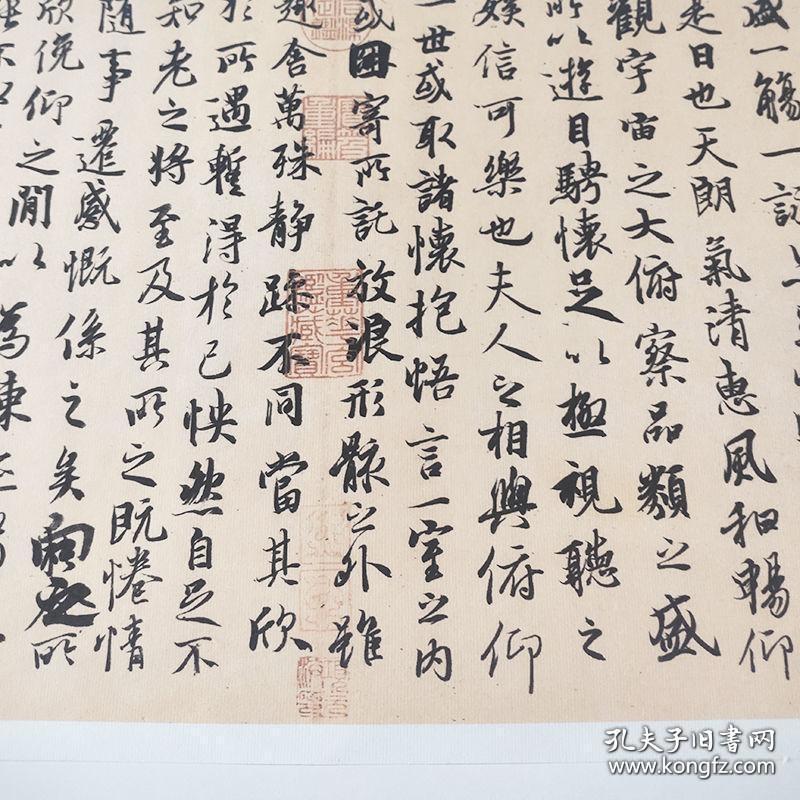 盛一觴一詠
是日也天朗氣清惠風和暢仰
觀宇宙之大俯察品類之盛
所以遊目騁懷足以極視聽之
娛信可樂也夫人之相與俯仰
一世或取諸懷抱悟言一室之內
或因寄所託放浪形骸之外雖
趣舍萬殊靜躁不同當其欣
於所遇暫得於己怏然自足不
知老之將至及其所之既惓情
隨事遷感慨係之矣向之所
欣俛仰之閒以為陳迹
孔夫子旧书网
www.kongfz.com